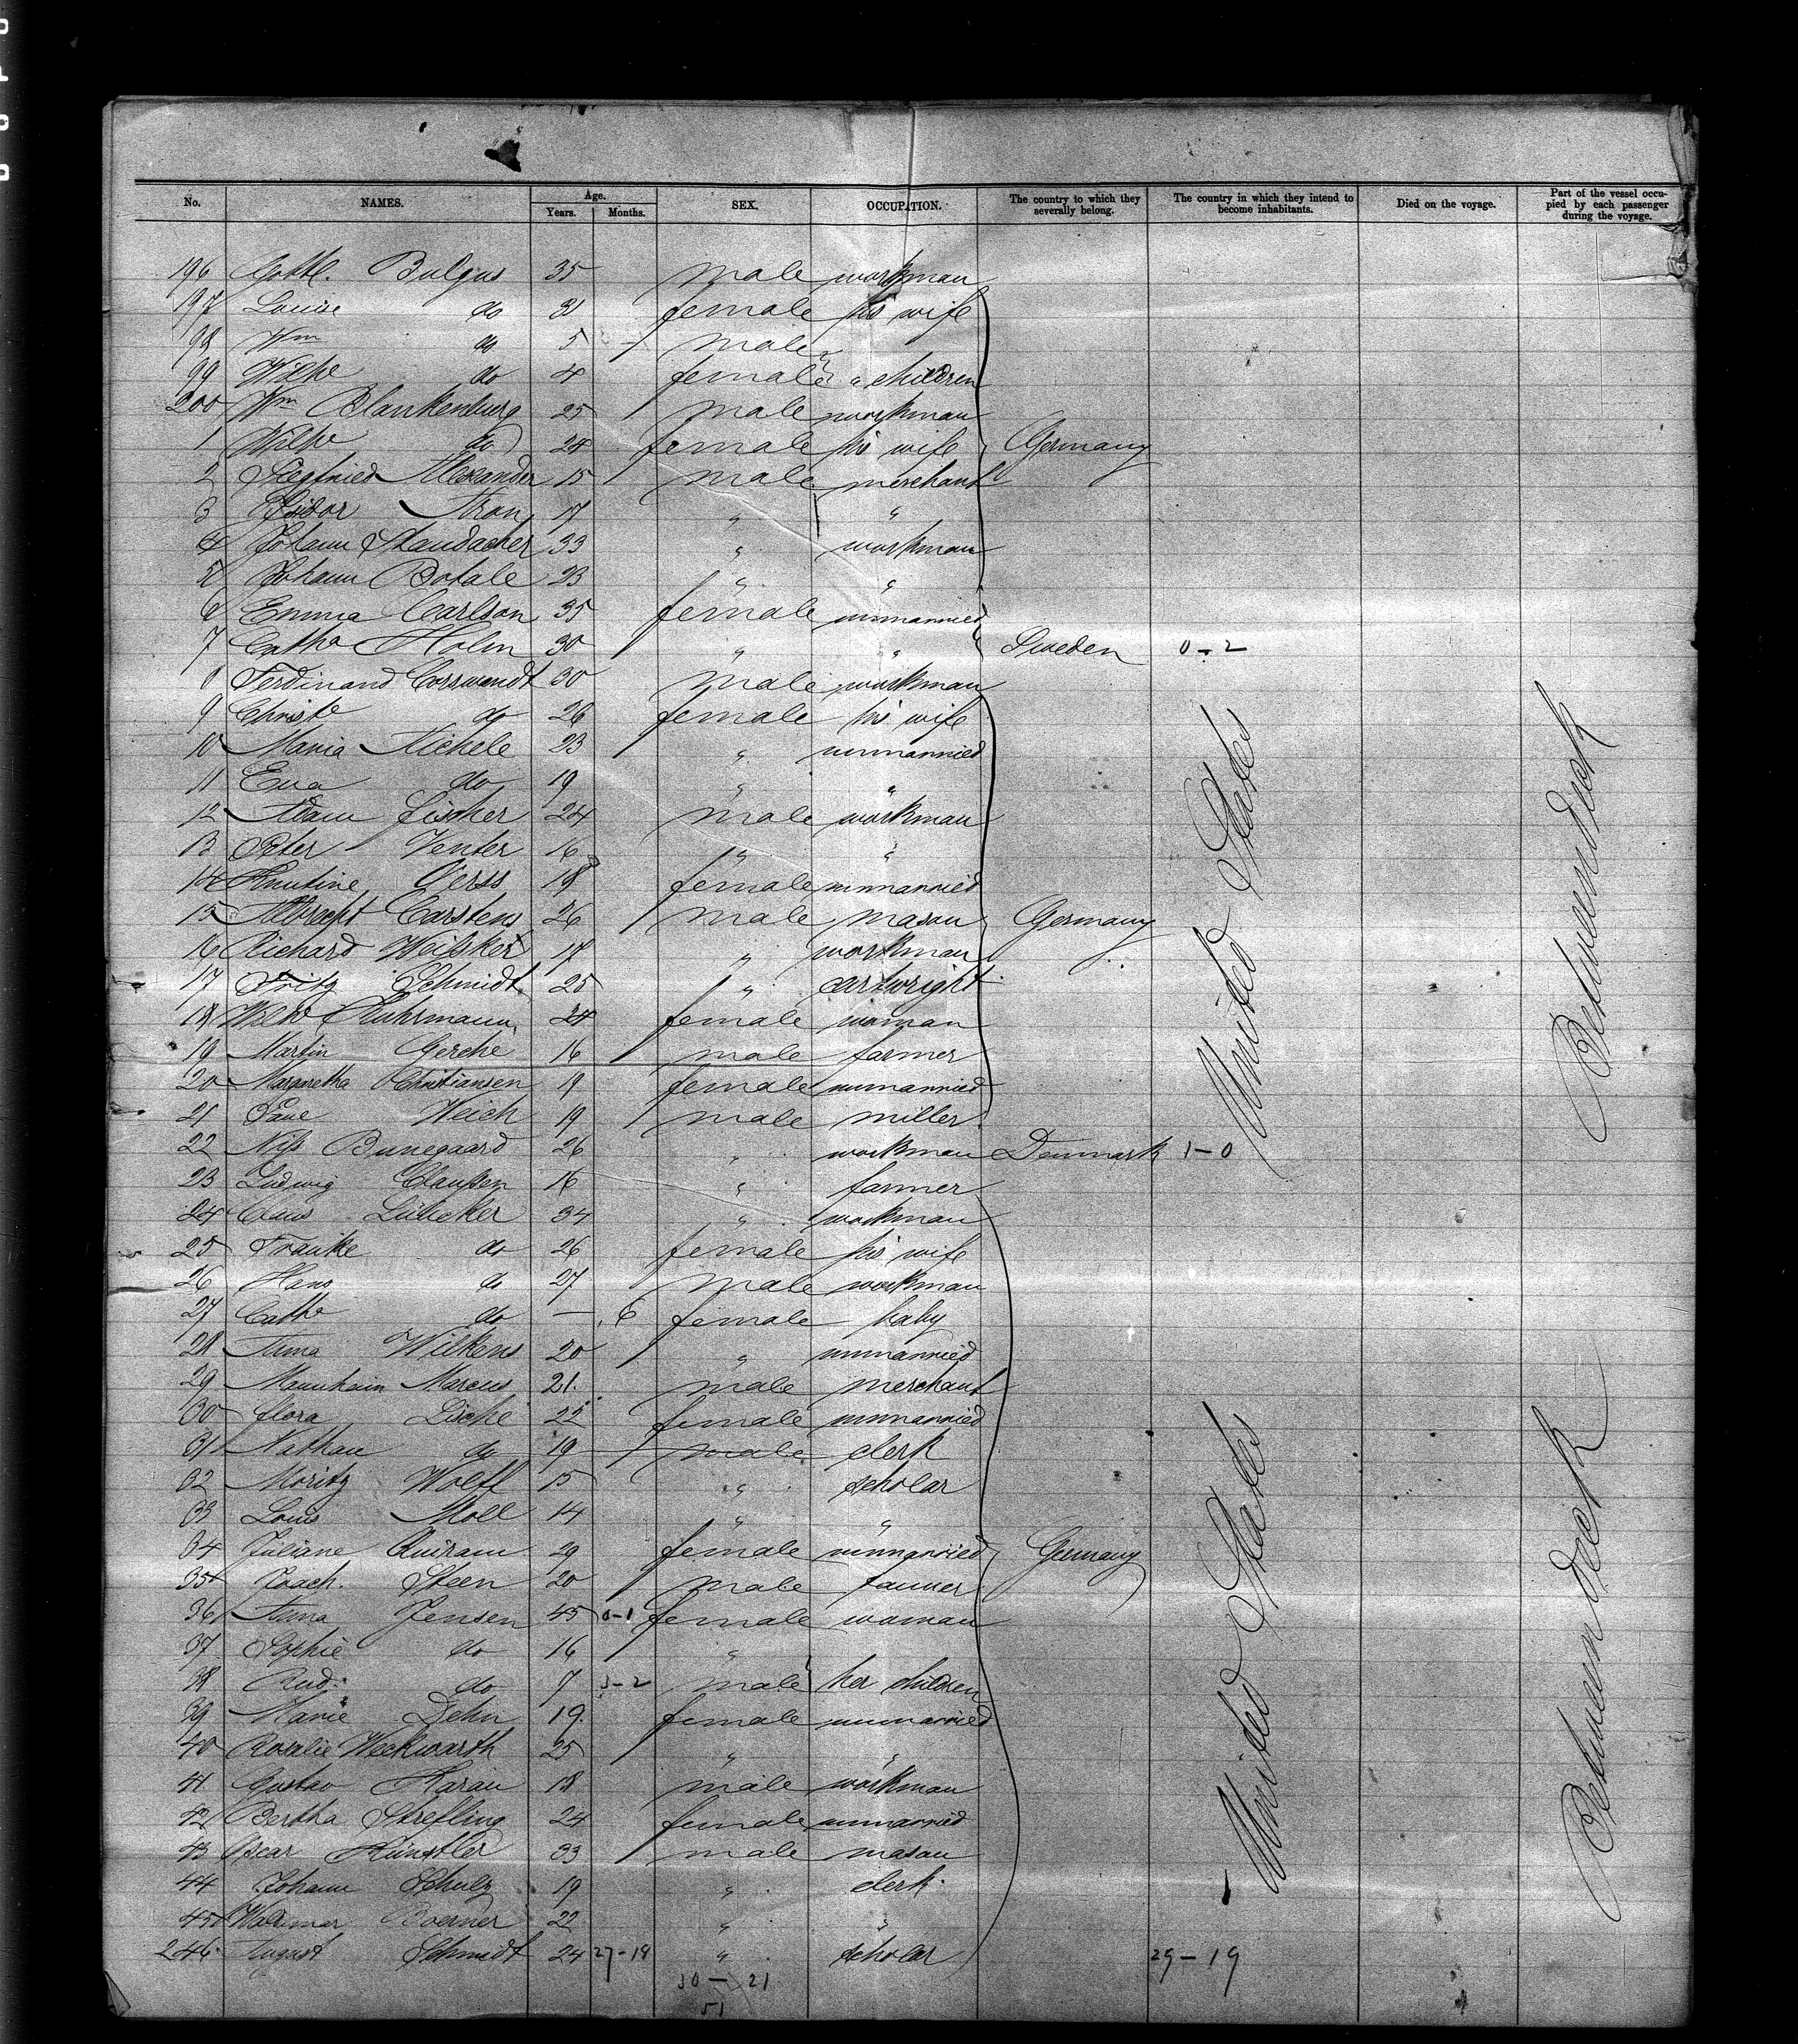 No. NAMES. Age. Years. Months. SEX. OCCUPATION. The country to which they severally belong. The country in which they intend to become inhabitants. Died on the voyage. Part of the vessel occupied by each passenger during the voyage.
196 Gottl. Bulgus 35 male workman
197 Louise do 31 female his wife
98 Wm do 5 male
99 Wilhe do 4 female " children
200 Wm Blankenburg 25 male workman
1 Wilhe do 24 female his wife Germany
2 Siegfried Alexander 15 male merchant
3 Isidor Aron 17 " "
4 Johann Staudacher 33 " workman
5 Johann Botale 23 " "
6 Emma Carlson 35 female unmarried
7 Cathe Holm 30 " " Sweden 0-2
8 Ferdinand Corswandt 30 male workman
9 Christe do 26 female his wife
10 Maria Michele 23 " unmarried
11 Eva do 19 " "
12 Adam Fischer 24 male workman
13 Peter Venter 16 " "
14 18 female unmarried
15 Albrecht Carstens 26 male mason Germany
16 Richard Weifsker 17 " workman
17 Fritz Schmidt 25 " cartwright
18 Wilhe Ruhrmann 24 female woman
19 Martin Gerche 16 male farmer
20 Margretha Christiansen 19 female unmarried
21 Weich 19 male miller
22 Nifs Bunegaard 26 " workman Denmark 1-0
United States
Between deck
23 Ludwig Claufsen 16 " farmer
24 Claus Lübcker 34 " workman
25 Frauke do 26 female his wife
26 Hans do 27 male workman
27 Cathe do — 6 female baby
28 Anna Wilkens 20 " unmarried
29 Mannheim Marcus 21 male merchant
30 Flora Lische 22 female unmarried
31 Nathan do 19 male clerk
32 Moritz Wolff 15 " scholar
33 Louis Moll 14 " "
34 Juliane Quiram 29 female unmarried Germany
35 Joach. Steen 20 male farmer
36 Anna Jensen 45 0-1 female woman
37 Sophie do 16 "
38 Rud. do 7 3-2 male her children
39 Marie Dehn 19 female unmarried
40 Rosalie Weckwarth 25 " "
41 Gustav Karau 18 male workman
42 Bertha Strefling 24 female unmarried
43 Oscar Künstler 33 male mason
44 Johann Schulz 19 " clerk
45 Waldemar Boerner 22 " "
246 August Schmidt 24 27-18 " scholar 29-19
United States
Between deck
30-21
51